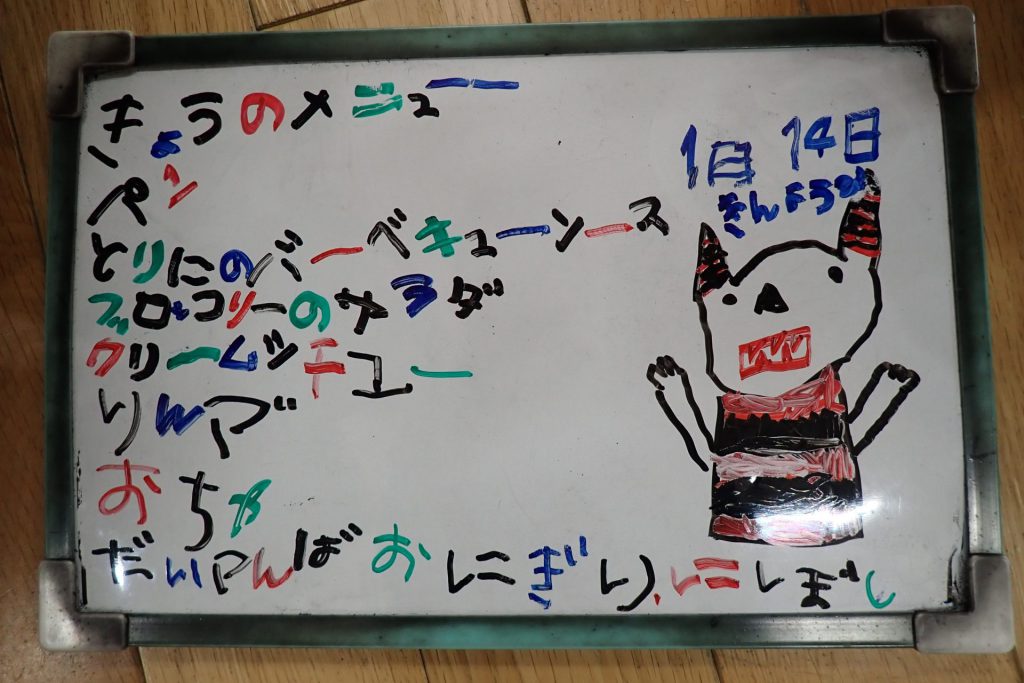 きょうのメニュー
パン
とりにのバーベキューソース
ブロッコリーのサラダ
クリームシチュー
りんご
おちゃ
だいこんば おにぎり、にぼし
1日 14日
きんようび